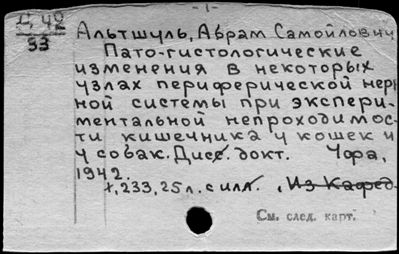 - 1 -
Д 42
53
Альтшуль, Абрам Самойлович
Пато-гистологические
изменения в некоторых
узлах периферической нерв
ной системы при экспери-
ментальной непроходимос-
ти кишечника у кошек и
у собак. Дисс. докт. Уфа,
1942.
233, 25 л. с илл. , Из Кафед.
См. след. карт.